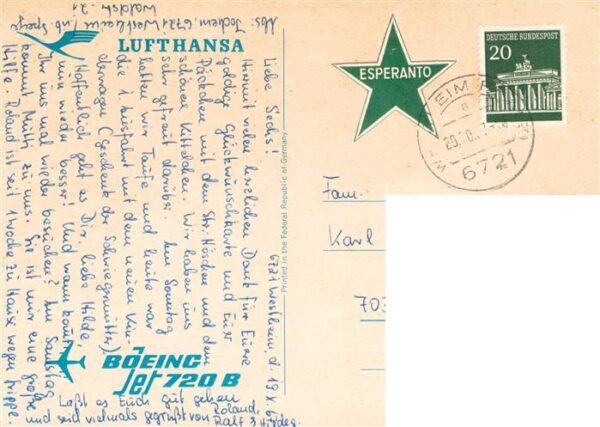 Abs. Jochem, 6721 Westheim / üb. Speyer
Waldstr. 21
LUFTHANSA
6721 Westheim, d. 19.X.6
Liebe Sechs!
Hiermit vielen herzlichen Dank für Euere
goldige Glückwunschkarte und Euer
Päckchen mit dem Str. Höschen und dem
schönen Kittelchen. Wir haben uns
sehr gefreut darüber. Am Sonntag
hatten wir Taufe und heute war
die 1. Ausfahrt mit dem neuen Kin-
derwagen (Geschenk der Schwiegermutter).
Hoffentlich geht es Dir, liebe Hilde,
nun wieder besser! Und wann kommt
Ihr uns mal wieder besuchen? Am Samstag
kommt Mutti zu uns. Sie ist mir eine große
Hilfe. Roland ist seit 1 Woche zu Hause wegen Grippe.
Laßt es Euch gut gehen
und seid vielmals gegrüßt von Roland,
Ralf & Hildeg.
BOEING
Jet 720 B
Printed in the Federal Republic of Germany
ESPERANTO
DEUTSCHE BUNDESPOST
20
EIM
a
20.10.
6721
Fam.
Karl
703